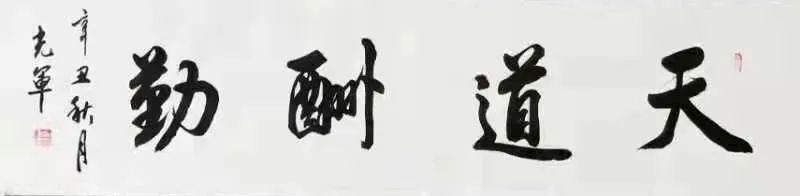 天道酬勤
辛丑秋月
光軍